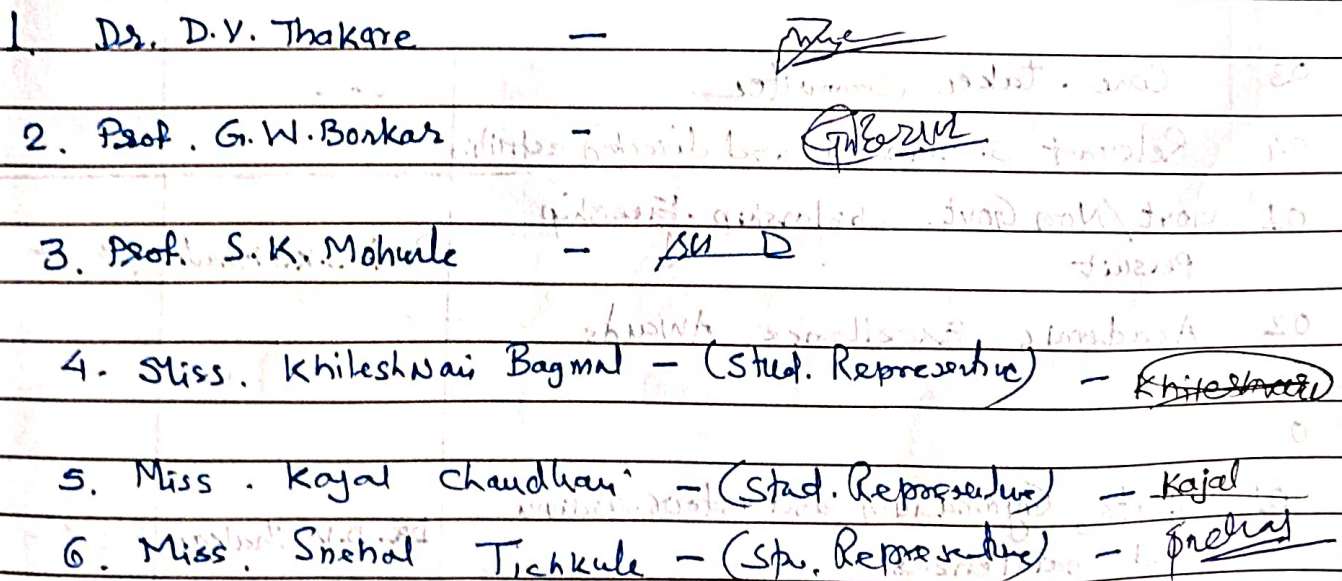 1. Dr. D.V. Thakare -
2. Prof. G.W. Borkar -
3. Prof. S.K. Mohurle -
4. Miss. Khileshwari Bagmal - (Stud. Representive) - Khileshwari
5. Miss. Kajal Chaudhari - (Stud. Representive) - Kajal
6. Miss. Snehal Tichkule - (Stu. Representive) - Snehal